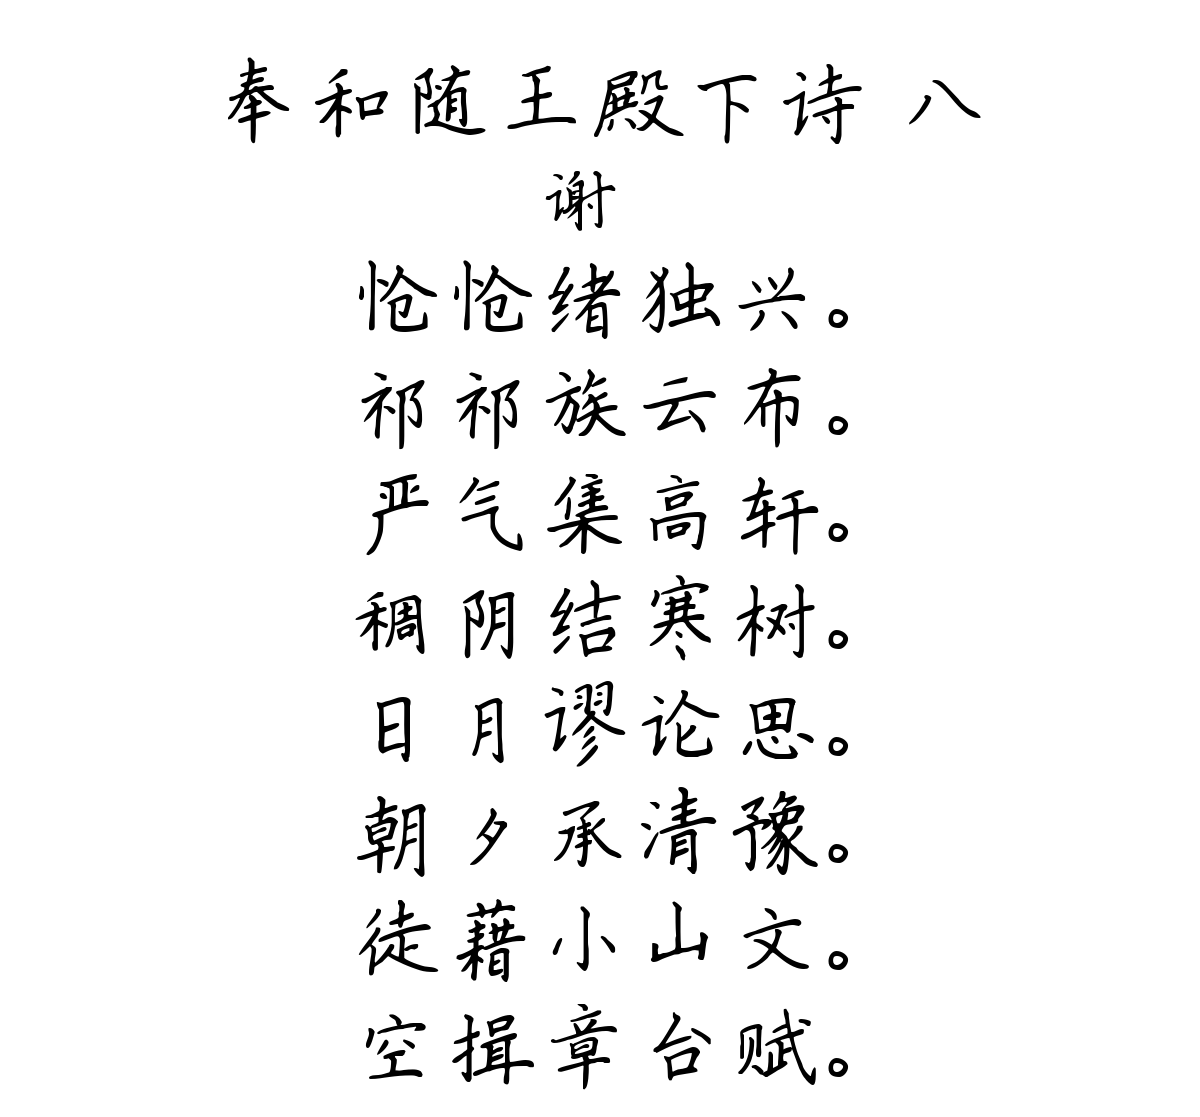 奉和随王殿下诗 八
谢
怆怆绪独兴。
祁祁族云布。
严气集高轩。
稠阴结寒树。
日月谬论思。
朝夕承清豫。
徒藉小山文。
空揖章台赋。